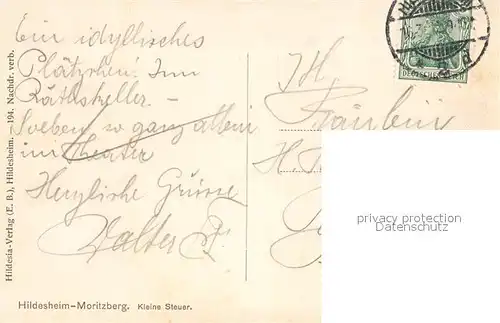 Ein idyllisches
Plätzchen! Im
Rathskeller. –
Soeben so ganz allein
im Theater
Herzliche Grüsse
Walter F.
Fräulein
H
DEUTSCHES REICH
privacy protection
Datenschutz
Hildesheim-Moritzberg. Kleine Steuer.
Hildesia-Verlag (E. B.), Hildesheim. — 194. Nachdr. verb.